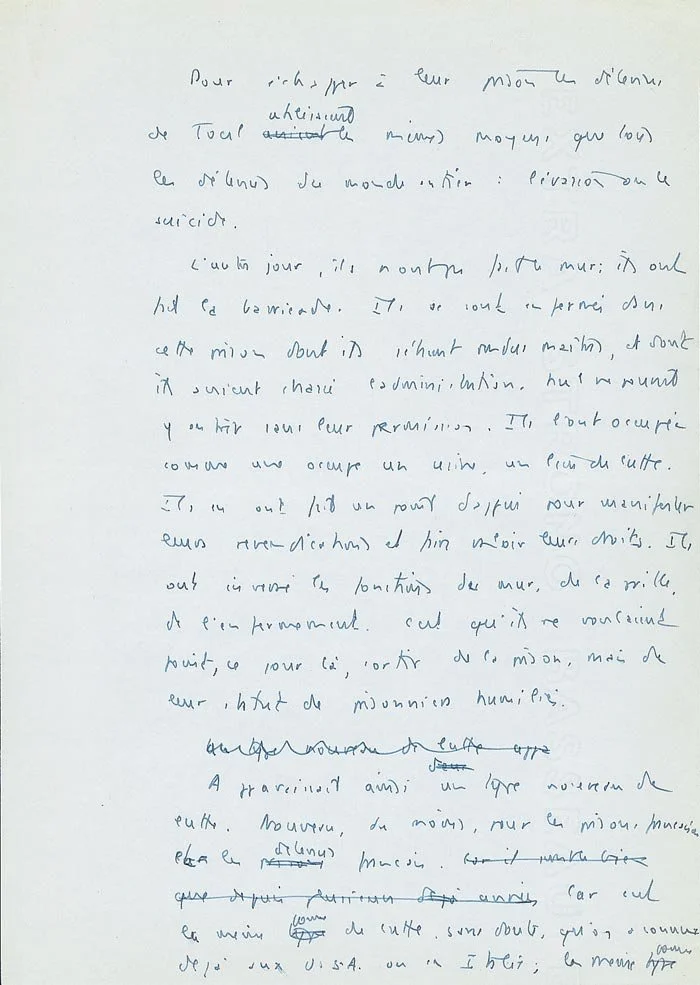 Pour échapper à leur prison les détenus
utilisaient
de Toul avaient les mêmes moyens que tous
les détenus du monde entier : l'évasion ou le
suicide.
L'autre jour, ils n'ont pas fait le mur; ils ont
fait la barricade. Ils se sont enfermés dans
cette prison dont ils s'étaient rendus maîtres, et dont
ils avaient chassé l'administration. Nul ne pouvait
y entrer sans leur permission. Ils l'ont occupée
comme une occupe un usine, un lieu de lutte.
Ils en ont fait un point d'appui pour manifester
leurs revendications et faire valoir leurs droits. Ils
ont inversé les fonctions du mur, de la grille,
de l'enfermement. C'est qu'ils ne voulaient
point, ce jour là, sortir de la prison, mais de
leur statut de prisonniers humiliés.
Un type nouveau de lutte
dans
Apparaissait ainsi un type nouveau de
lutte. Nouveau, du moins, pour les prisons françaises
les détenus
français.
que depuis plusieurs années, Car c'est
forme
la même type de lutte, sans doute, qu'on a connue
forme
déjà aux U.S.A. ou en Italie; la même type